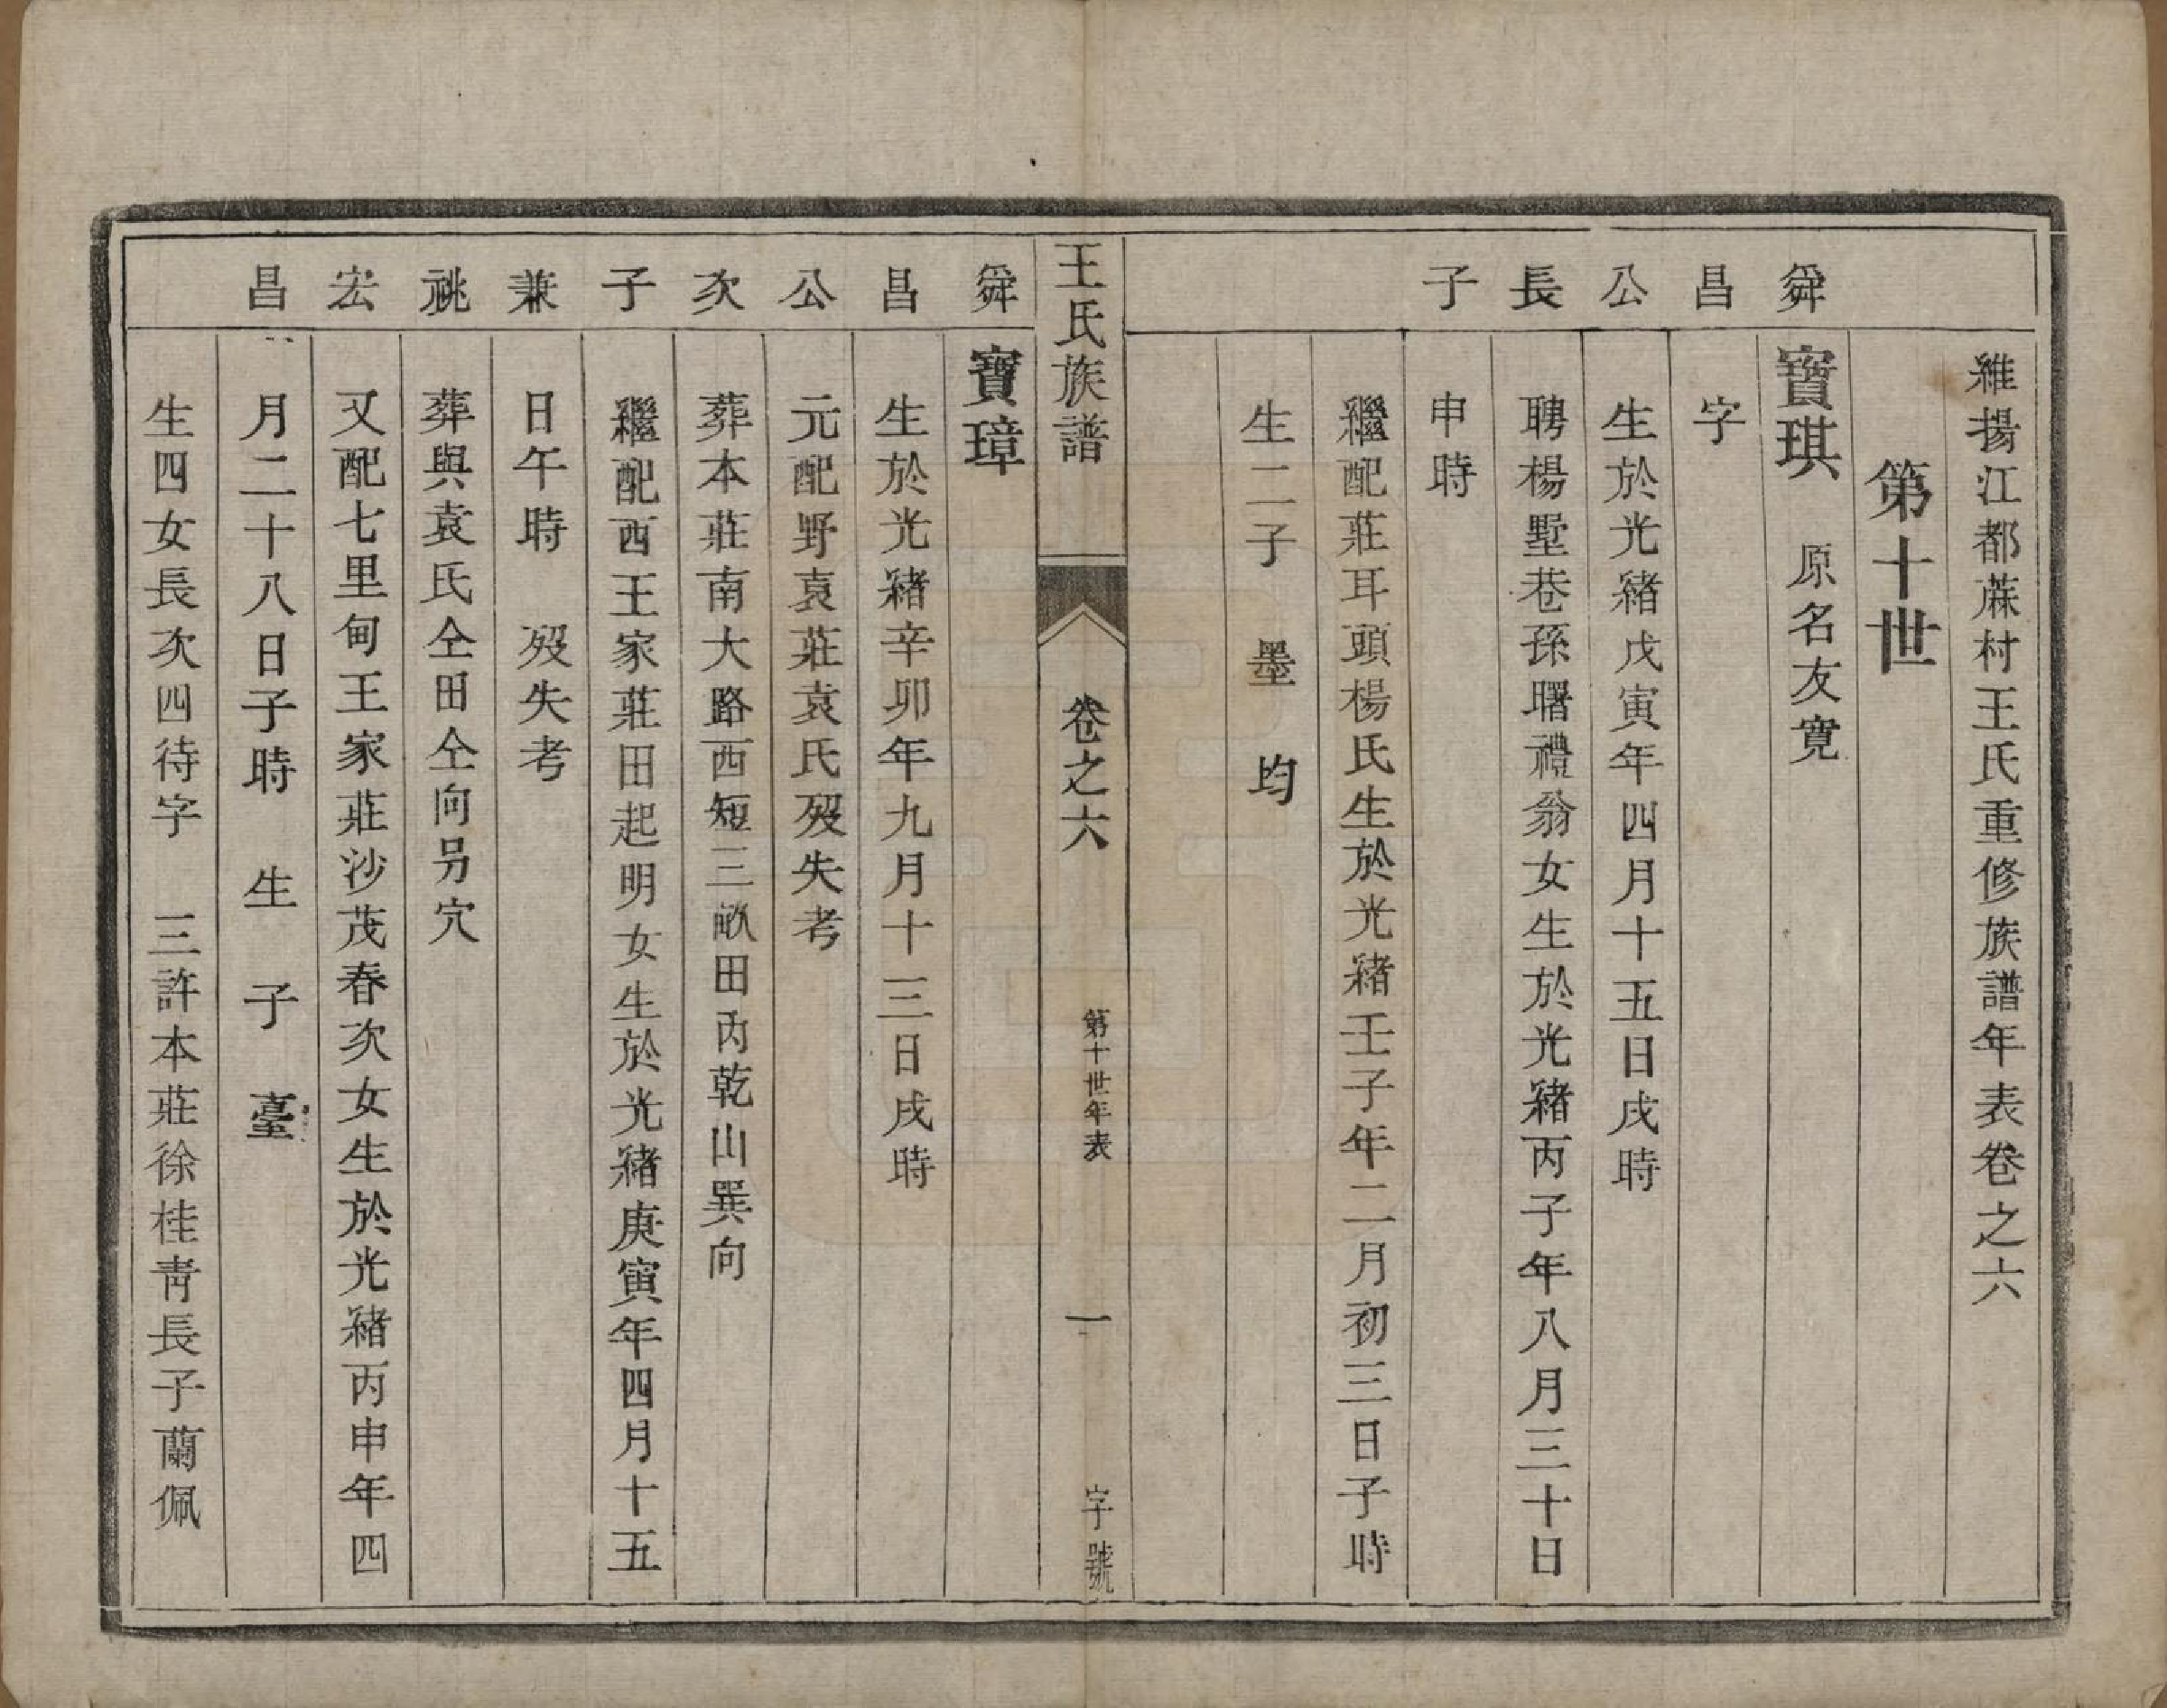 維揚江都蔴村王氏重修族譜年表卷之六
第十世
舜昌公長子
寶琪 原名友寬
字
生於光緒戊寅年四月十五日戌時
聘楊墅巷孫曙禮翁女生於光緒丙子年八月三十日
申時
繼配莊耳頭楊氏生於光緒壬子年二月初三日子時
生二子 墨 均
王氏族譜 卷之六 第十世年表 一 字號
舜昌公次子兼祧宏昌
寶璋
生於光緒辛卯年九月十三日戌時
元配野袁莊袁氏歿失考
葬本莊南大路西短三畝田內乾山巽向
繼配西王家莊田起明女生於光緒庚寅年四月十五
日午時 歿失考
葬與袁氏仝田仝向另穴
又配七里甸王家莊沙茂春次女生於光緒丙申年四
月二十八日子時 生 子 臺
生四女長次四待字 三許本莊徐桂青長子蘭佩